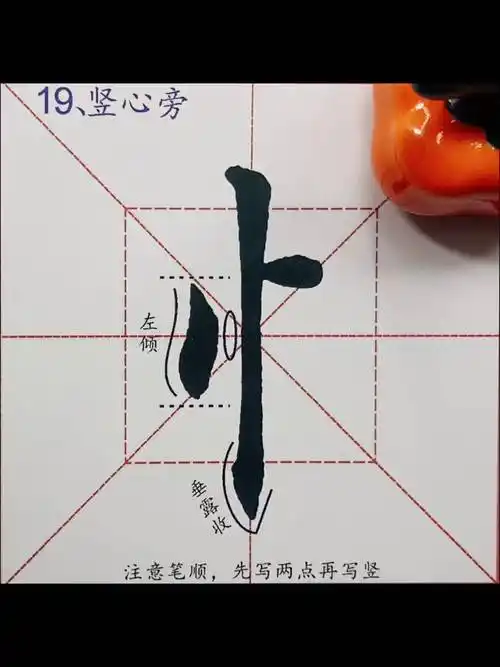 19、竖心旁
忄
左倾
垂露收
注意笔顺，先写两点再写竖